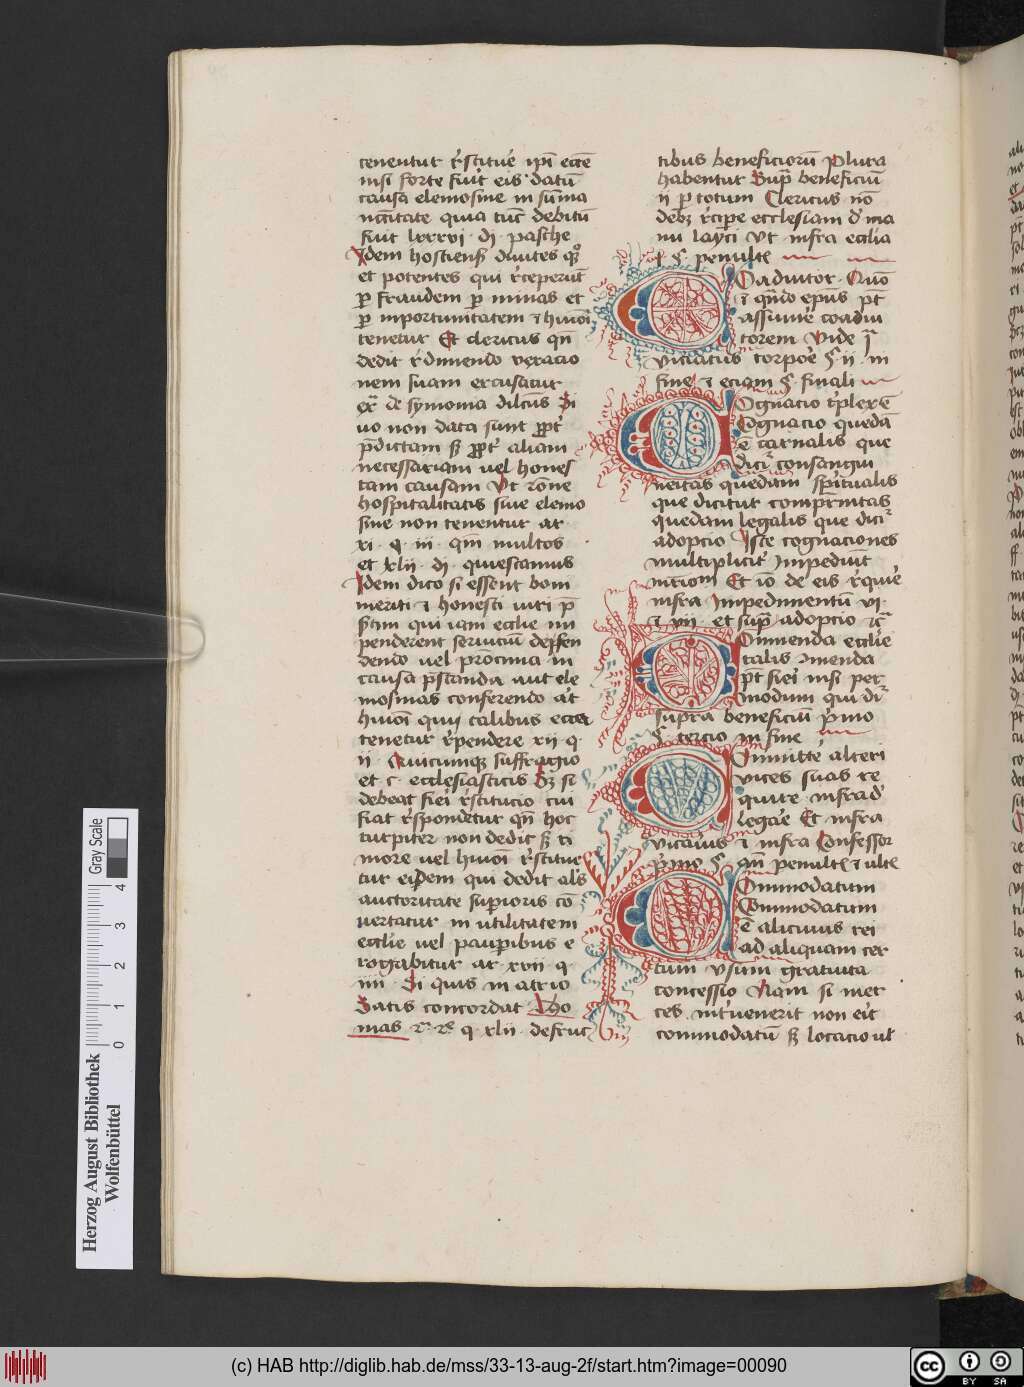 tenentur r̄stitue͛ ip̄i ecc̄e
nisi forte fuīt eis datū
causa elemosine in sūma
nc̄citate quia tūc debitū
fuit lxxxvi · dj · pasche
Idem hostiens̄ diuites qͦ
et potentes qui r̄ceperūt
ꝑ fraudem ꝑ minas et
ꝑ inportunitatem ⁊ hmōi
tenetur Et clericus qn̄
dedit r̄dimendo vexacio
nem suam excusatur
ex͛ de symonia dilc̄us Si
uo non data sunt ꝓpt͛
p̄dictam sꝫ ꝓpt͛ aliam
necessariam uel hones
tam causam Vt rōne
hospitalitatis siue elemo
sine non tenentur ar
xi · q · iii · qm̄ multos
et xlii · dj · quiescamus
Idem dico si essent boni
meriti ⁊ honesti uiri p̄
sertim qui iam ecclīe im
penderent seruiciū deffen
dendo uel
causa p̄standa aut ele
mosinas conferendo at
hmōi quij talibus
tenetur r̄pendere xii q ·
ii · Quicumqꝫ suffragio
et c · ecclesiasticis Sꝫ si
debeat fieī r̄stitucio cui
fiat r̄spondetur qn̄ hoc
turpiter non dedit sꝫ ti
more uel hmōi r̄stitue
tur eidem qui dedit al̄s
auctoritate sup̱ioris cō
uertatur in utilitatem
ecclīe uel paup̱ibus e
rogabitur ar · xvii q ·
iiii · Si quis in atrio
Satis concordat Tho
mas · q · xlii · defruc
tibus beneficiorū Plura
habentur Sup̄ beneficiū
ii p̱ totum Clericus nō
debꝫ r̄cip̱e ecclesiam d͛ ma
nu layci Vt infra ecclīa
i · § · penultē
Coadiutor · Quō
⁊ qn̄do ep̄us p̄t
assume͛ coadiu
torem Vide
Viciatus corpōe § ii · in
fine ⁊ eciam § finali
Cognacio t͛plex ē
Cognacio quedā
ē carnalis que
dicit͛ consangui
neitas quedam sp̄ritualis
que dicitur comp̄rnitas
quedam legalis que dicit͛
adopcio Iste cognaciones
multiplicit͛ Impediūt
mr̄iom Et iō de eis r̄quir͛
infra Impedimentū vi ·
⁊ vii · et sup̄ adopcio ⁊c͛
Commenda ecclīe
talis Imenda
p̄t fieī nisi per
modum qui di͛
supra beneficiū p̄mo
§ · tercio in fine
Committe͛ alteri
vices suas re
quire infra d͛
legāe Et infra
vicaius ⁊ infra Confessor
p̄mo § · qn̄ penultē ⁊ ultē
Commodatum
Commodatum
ē alicuius rei
ad aliquam cer
tum vsum gratuita
concessio Nam si mer
ces intuenerit non eīt
commodatū sꝫ locacio ul̄
Gray Scale
0 1 2 3 4
Herzog August Bibliothek
Wolfenbüttel
(c) HAB http://diglib.hab.de/mss/33-13-aug-2f/start.htm?image=00090
cc BY SA